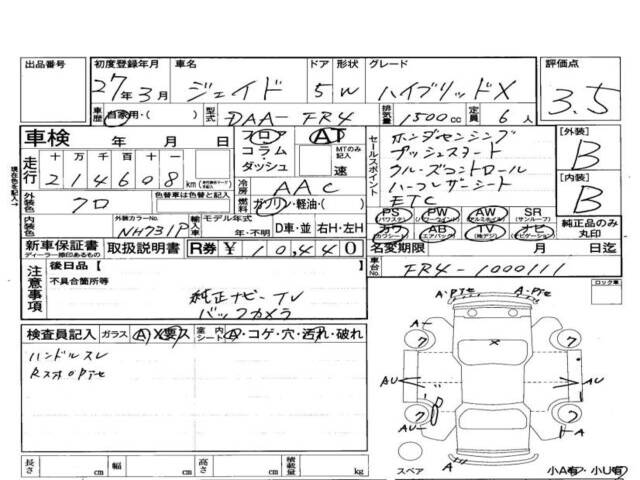 出品番号 初度登録年月 車名 ドア 形状 グレード 評価点
27年3月 ジェイド 5 W ハイブリッドX 3.5
車歴 自家用・( ) 型式 DAA-FR4 排気量 1500cc 定員 6人
車検 年 月 日 フロア AT セールスポイント ホンダセンシング [外装]
コラム・ダッシュ MTのみ記入 速 プッシュスタート B
走行 十万千百十一 クルーズコントロール
214608 km 冷房 AAC ハーフレザーシート [内装]
外装色 クロ 色替車は色替と記入 燃料 ガソリン・軽油・( ) ETC B
内装色 外装カラーNo. NH731P 輸入車 モデル年式 年・不明 D車・並 右H・左H
PS パワステ PW パワーウィンド AW アルミホイル SR (サンルーフ)
カワ カワシート AB エアバック TV (地デジ) ナビ ナビゲーション 純正品のみ丸印
新車保証書 ディーラー捺印あるもの 取扱説明書 R券 ¥10,440 名変期限 月 日迄
注意事項 後日品[ ] 車台No. FR4-1000111
不具合箇所等 ロック車
純正ナビ-TV
バックカメラ
検査員記入 ガラス A X要ス 室内シート A・コゲ・穴・汚れ・破れ
ハンドルスレ
A・Pﾃﾞｷ
A
AU
AU
AU
A
A
長さ cm 幅 cm 高さ cm 積載量 kg スペア 小A有・小U有